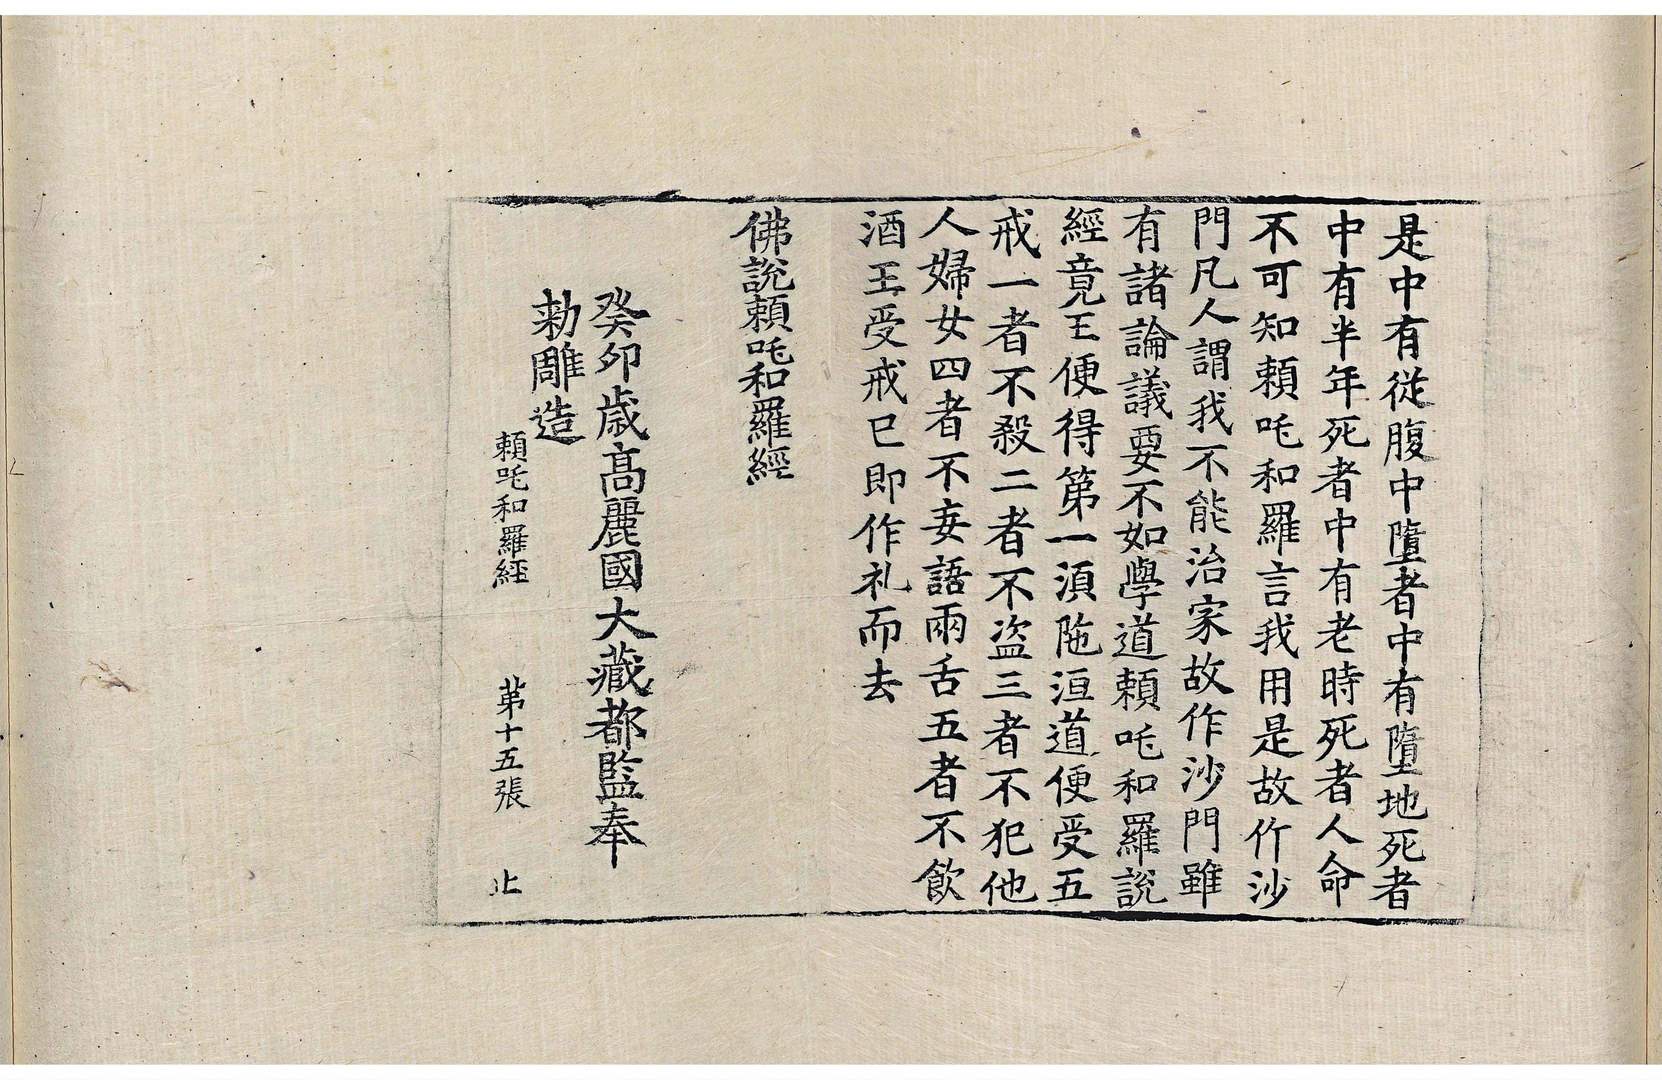 是中有從腹中墮者中有墮地死者
中有半年死者中有老時死者人命
不可知賴吒和羅言我用是故作沙
門凡人謂我不能治家故作沙門雖
有諸論議要不如學道賴吒和羅說
經竟王便得第一須陁洹道便受五
戒一者不殺二者不盜三者不犯他
人婦女四者不妄語兩舌五者不飮
酒王受戒已即作礼而去
佛說賴吒和羅經
癸卯歲高麗國大藏都監奉
勅雕造
賴吒和羅経
苐十五張
止